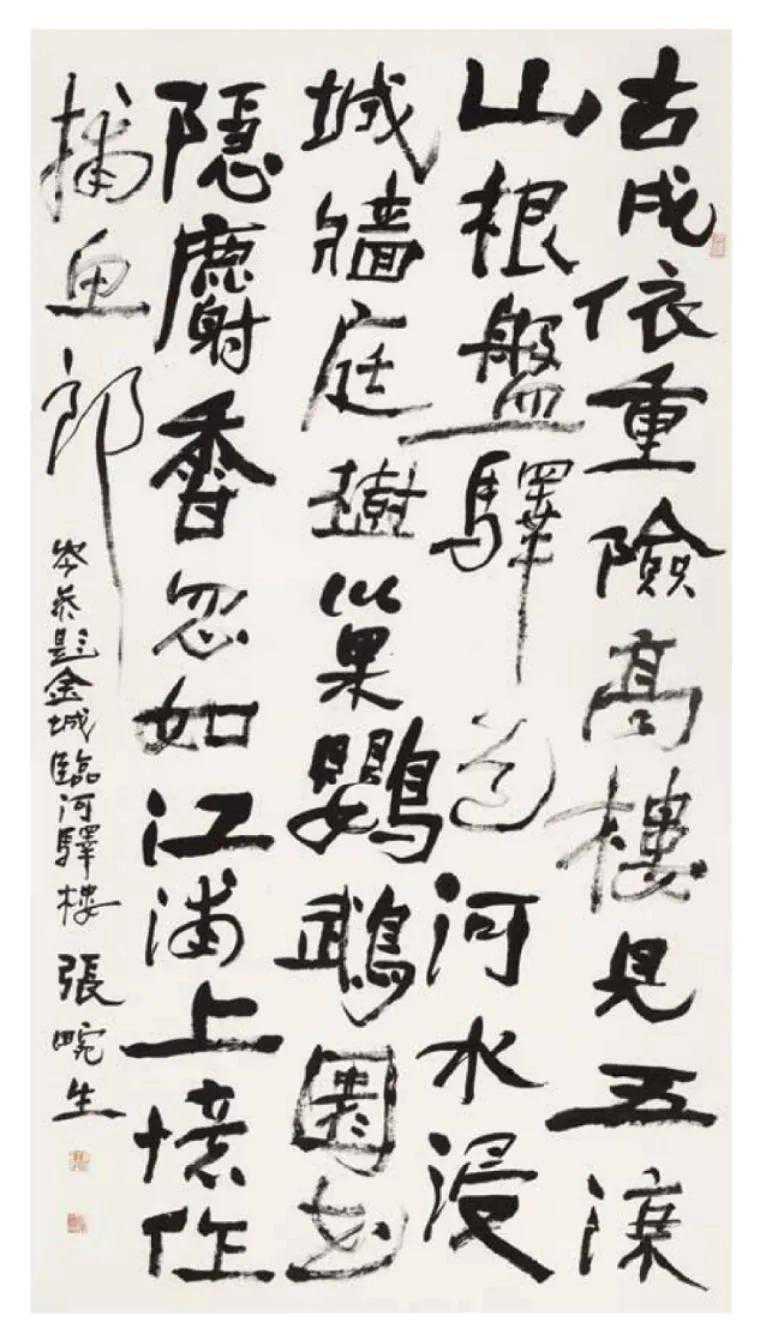 古戍依重險高樓見五涼
山根盤驛道河水浸
城牆庭樹巢鸚鵡園花
隱麝香忽如江浦上憶作
捕魚郎
岑參題金城臨河驛樓 張畹生